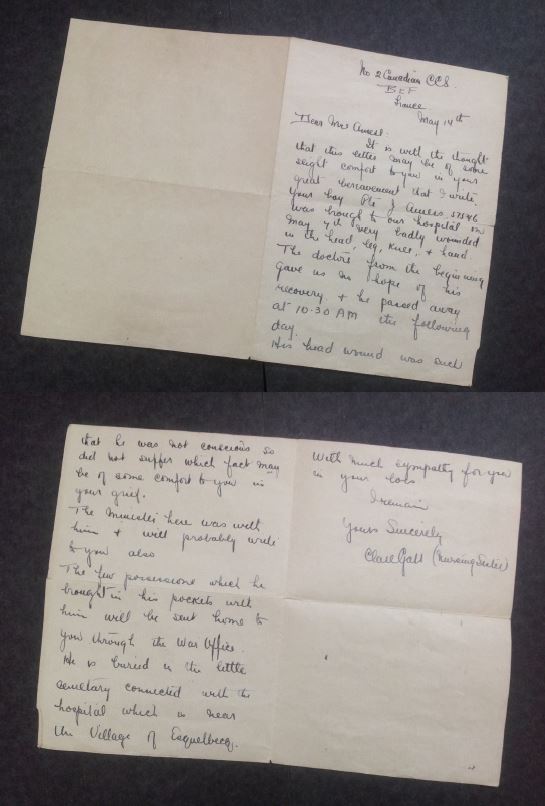 No 2 Canadian CCS.
BEF
France
May 14th
Dear Mrs
It is with the thought
that this letter may be of some
slight comfort to you in your
great bereavement that I write.
your boy Pte J
was brough to our hospital on
May 7th very badly wounded
in the head, leg, knee, & hand.
The doctors from the beginning
gave us no hope of his
recovery & he passed away
at 10.30 AM the following
day.
His head wound was such
that he was not conscious so
did not suffer which fact may
be of some comfort to you in
your grief.
The Minister here was with
him & will probably write
to you also
The few possessions which he
brought in his pockets with
him will be sent home to
you through the War Office.
He is buried in the little
cemetary connected with the
hospital which is near
the Village of Esquelbecq.
With much sympathy for you
in your loss
I remain
Yours Sincerely
(Nursing Sister)